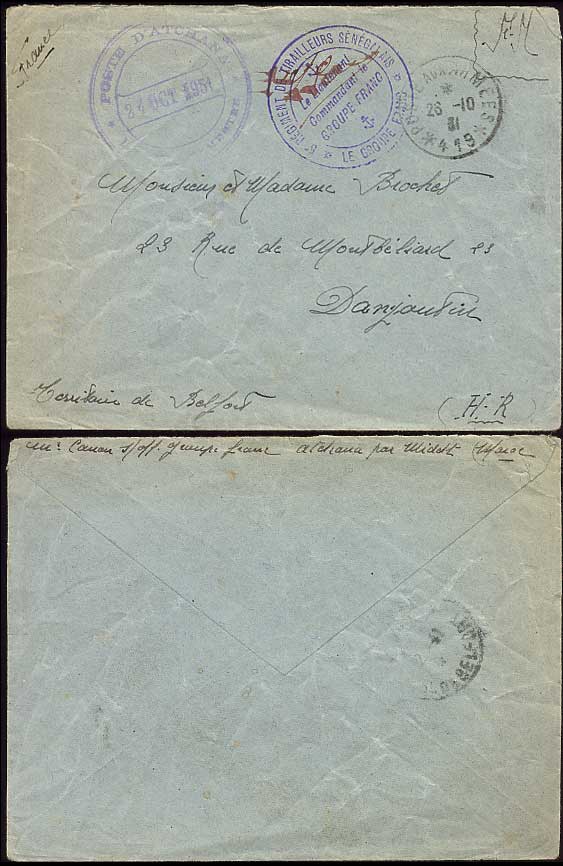 France
F.M
POSTE D'ATCHANA
24 OCT 1931
6e REGIMENT DE TIRAILLEURS SÉNÉGALAIS
Le Lieutenant
Commandant le
GROUPE FRANC
LE GROUPE FRANC
POSTE AUX ARMÉES
26 -10
31
419
Monsieur et Madame Brochet
23 Rue de Montbéliard 23
Danjoutin
Territoire de Belfort
(H-R)
Canon s/off. groupe franc atchana par Midelt (Maroc